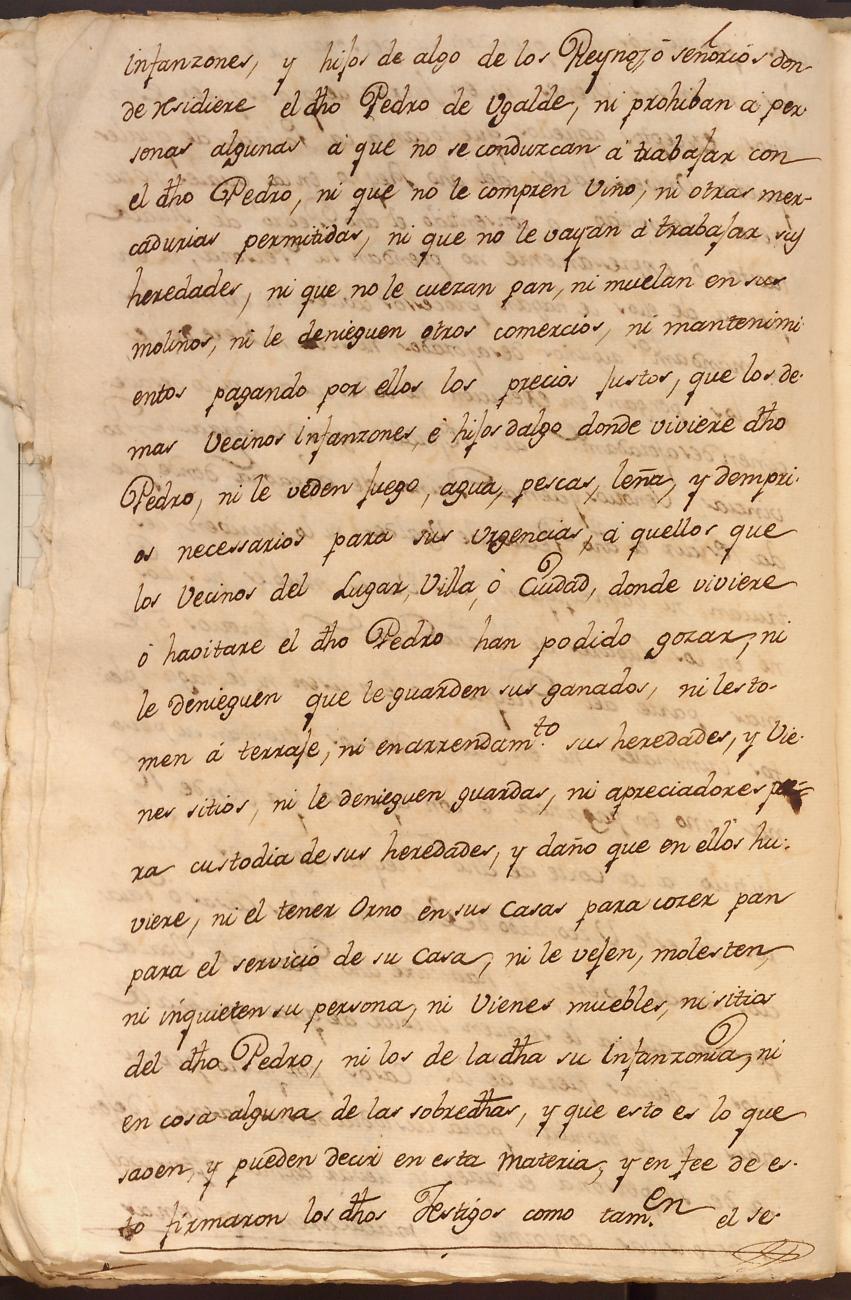 infanzones, y hijos de algo de los Reynos, ó señorios don-
de rsidiere el dho Pedro de Ugalde, ni prohiban á per
sonas algunas á que no se conduzcan á trabajar con
el dho Pedro, ni que no le compren vino, ni otras mer-
cadurias permitidas, ni que no le vayan á trabajar sus
heredades, ni que no le cuezan pan, ni muelan en sus
molinos, ni le denieguen otros comercios, ni mantenimi
entos pagando por ellos los precios justos, que los de-
mas Vecinos infanzones, é hijosdalgo donde viviere dho
Pedro, ni le veden fuego, agua, pescas, leña, y dempri-
os necessarios para sus urgencias, á quellos que
los Vecinos del Lugar, Villa, ó Ciudad, donde viviere
ó havitare el dho Pedro han podido gozar, ni
le denieguen que le guarden sus ganados, ni les to-
men á terraje, ni en arrendam.to sus heredades, y Vie-
nes sitios, ni le denieguen guardas, ni apreciadores pa=
ra custodia de sus heredades, y daño que en ellos hu-
viere, ni el tener Orno en sus Casas para cozer pan
para el servicio de su Casa, ni le vejen, molesten,
ni inquieten su persona, ni Vienes muebles, ni sitios
del dho Pedro, ni los de la dha su infanzonia, ni
en cosa alguna de las sobredhas, y que esto es lo que
saven, y pueden decir en esta materia, y en fee de es-
to firmaron los dhos Testigos como tam.en el se